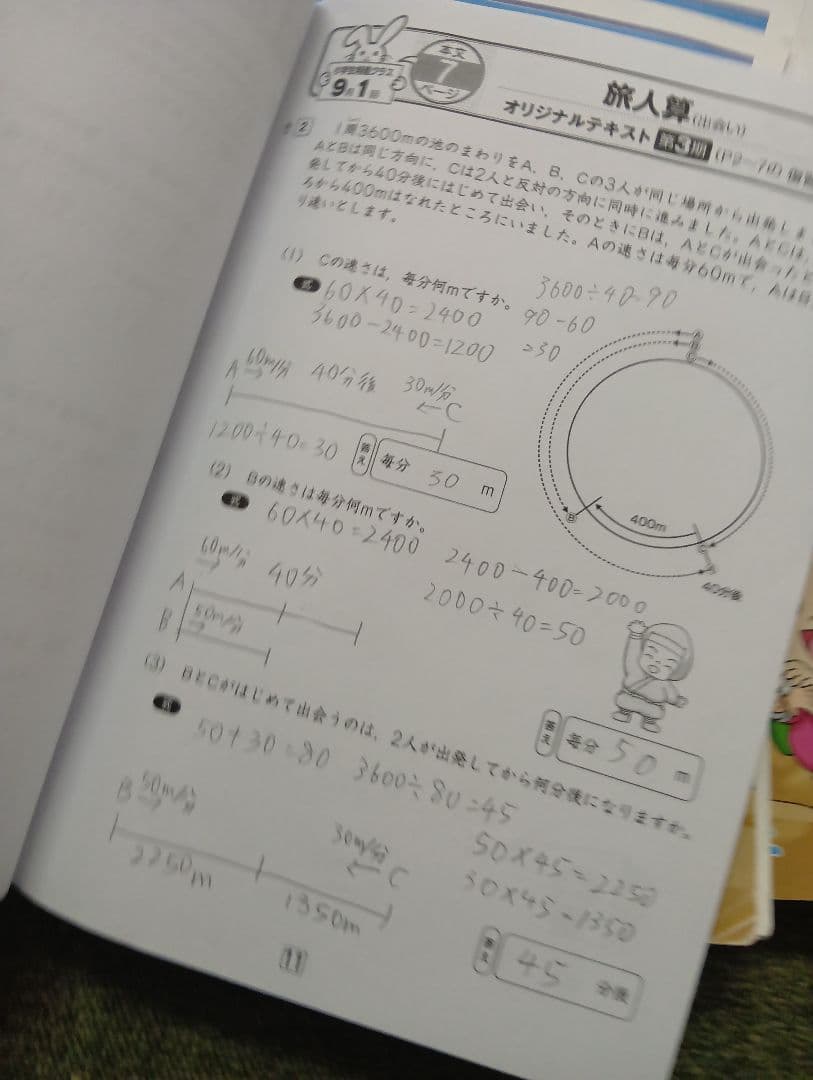 9月1回
本文
7
ページ
旅人算(出会い)
オリジナルテキスト 第3期 (P2~7の復習
2 1周3600mの池のまわりをA、B、Cの3人が同じ場所から出発しま
AとBは同じ方向に、Cは2人と反対の方向に同時に進みました。AとCは、
発してから40分後にはじめて出会い、そのときにBは、AとCが出会ったと
ろから400mはなれたところにいました。Aの速さは毎分60mで、Aは
り速いとします。
(1) Cの速さは、毎分何mですか。
式 60×40=2400
3600-2400=1200
3600÷40=90
90-60
=30
A 60m/分 → 40分後 30m/分 ← C
1200÷40=30
答え 毎分 30 m
A
B
C
B
400m
40分後
(2) Bの速さは毎分何mですか。
式 60×40=2400
2400-400=2000
2000÷40=50
60m/分 → 40分
A
B 50m/分 →
答え 毎分 50 m
(3) BとCがはじめて出会うのは、2人が出発してから何分後になりますか。
式 50+30=80 3600÷80=45
50×45=2250
30×45=1350
B 50m/分 → 30m/分 ← C
2250m 1350m
答え 45 分後
11